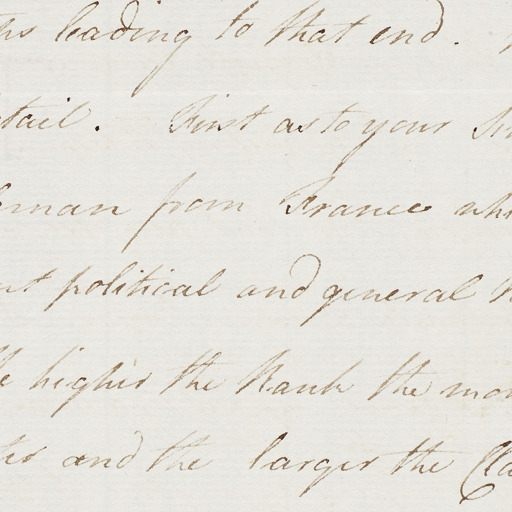 leading to that end.
tail. First as to your
man from France
political and general
higher the Rank the
and the larger the